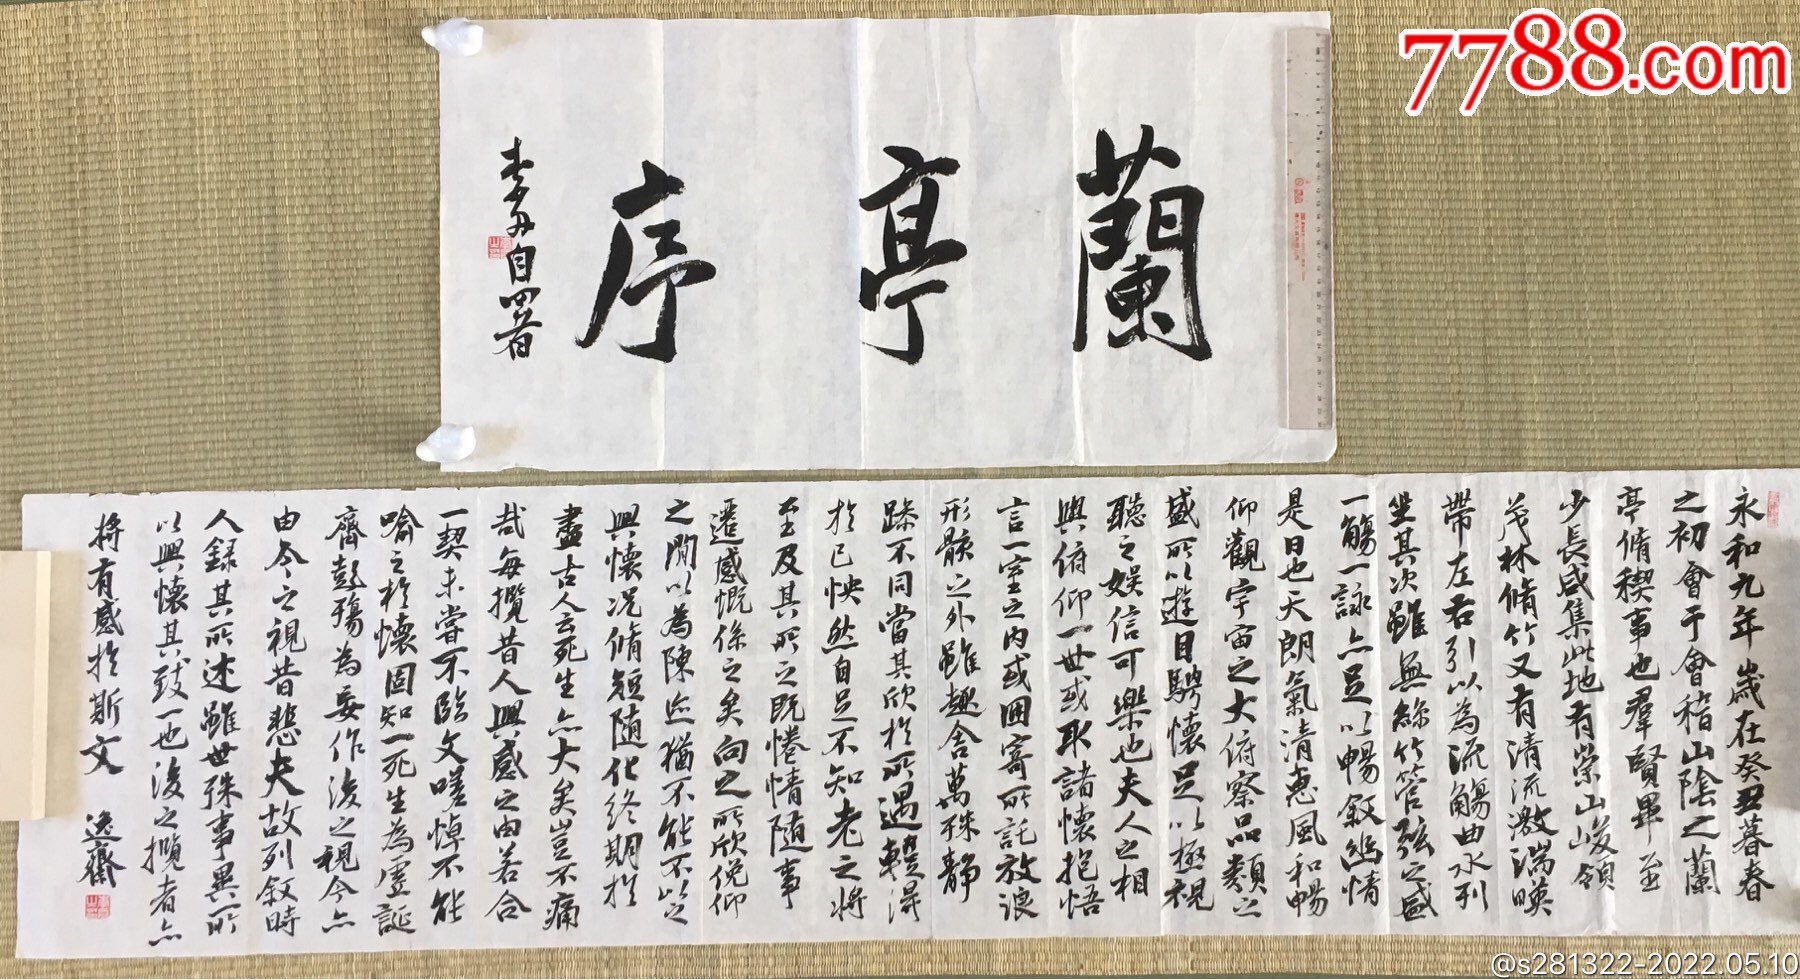 7788.com
蘭亭序
自署
永和九年歲在癸丑暮春
之初會于會稽山陰之蘭
亭脩稧事也羣賢畢至
少長咸集此地有崇山峻領
茂林脩竹又有清流激湍暎
帶左右引以為流觴曲水列
坐其次雖無絲竹管弦之盛
一觴一詠亦足以暢敘幽情
是日也天朗氣清惠風和暢
仰觀宇宙之大俯察品類之
盛所以遊目騁懷足以極視
聽之娛信可樂也夫人之相
與俯仰一世或取諸懷抱悟
言一室之內或因寄所託放浪
形骸之外雖趣舍萬殊靜
躁不同當其欣於所遇暫得
於己怏然自足不知老之將
至及其所之既惓情隨事
遷感慨係之矣向之所欣俛仰
之閒以為陳迹猶不能不以之
興懷況脩短隨化終期於
盡古人云死生亦大矣豈不痛
哉每攬昔人興感之由若合
一契未嘗不臨文嗟悼不能
喻之於懷固知一死生為虛誕
齊彭殤為妄作後之視今亦
由今之視昔悲夫故列敘時
人録其所述雖世殊事異所
以興懷其致一也後之攬者亦
將有感於斯文 逸齋
@s281322-2022.05.10